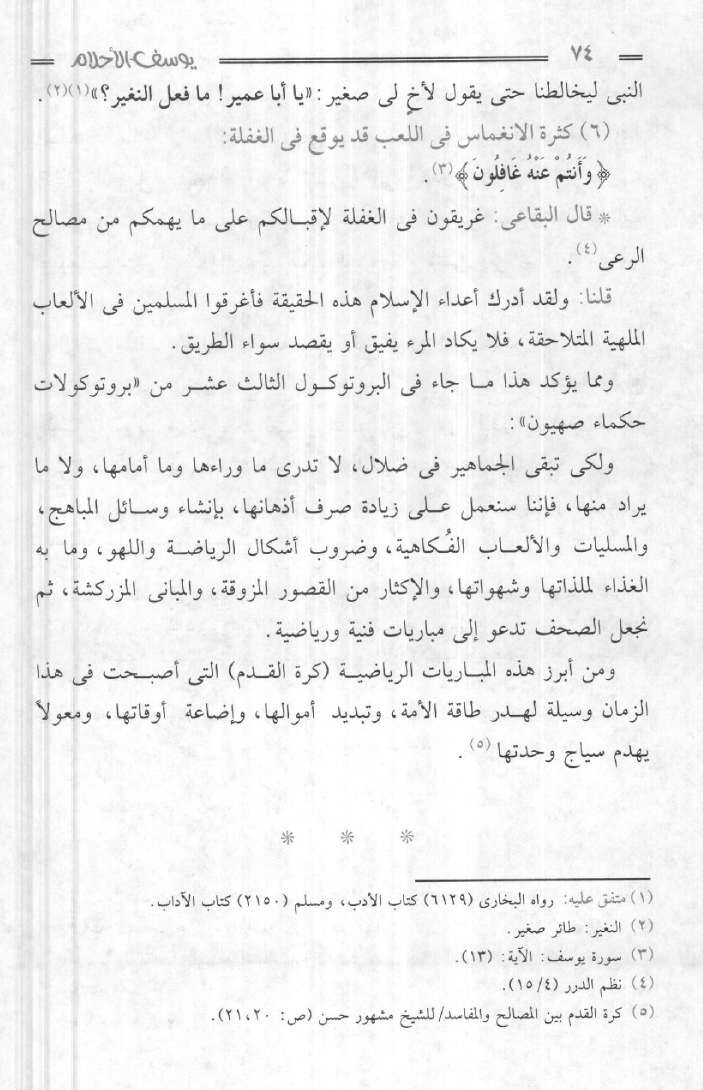 ٧٤ يوسف الأحلام
النبى ليخالطنا حتى يقول لأخٍ لى صغير: «يا أبا عمير! ما فعل النغير؟»(١)(٢).
(٦) كثرة الانغماس فى اللعب قد يوقع فى الغفلة:
﴿وَأَنتُمْ عَنْهُ غَافِلُونَ﴾(٣).
* قال البقاعى: غريقون فى الغفلة لإقبـالكم على ما يهمكم من مصالح
الرعى(٤).
قلنا: ولقد أدرك أعداء الإسلام هذه الحقيقة فأغرقوا المسلمين فى الألعاب
الملهية المتلاحقة، فلا يكاد المرء يفيق أو يقصد سواء الطريق.
ومما يؤكد هذا مـا جاء فى البروتوكـول الثالث عشـر من «بروتوكولات
حكماء صهيون»:
ولكى تبقى الجماهير فى ضلال، لا تدرى ما وراءها وما أمامها، ولا ما
يراد منها، فإننا سنعمل عـلى زيادة صرف أذهانها، بإنشاء وسـائل المباهج،
والمسليات والألعـاب الفُكاهية، وضروب أشكال الرياضـة واللهو، وما به
الغذاء لملذاتها وشهواتها، والإكثار من القصور المزوقة، والمبانى المزركشة، ثم
نجعل الصحف تدعو إلى مباريات فنية ورياضية.
ومن أبرز هذه المبـاريات الرياضيـة (كرة القـدم) التى أصبـحت فى هذا
الزمان وسيلة لهـدر طاقة الأمة، وتبديد أموالها، وإضاعة أوقاتها، ومعولاً
يهدم سياج وحدتها(٥).
* * *
(١) متفق عليه: رواه البخارى (٦١٢٩) كتاب الأدب، ومسلم (٢١٥٠) كتاب الآداب.
(٢) النغير: طائر صغير.
(٣) سورة يوسف: الآية: (١٣).
(٤) نظم الدرر (١٥/٤).
(٥) كرة القدم بين المصالح والمفاسد/ للشيخ مشهور حسن (ص: ٢٠، ٢١).